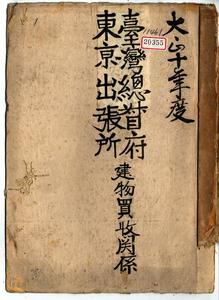 大正十年度
臺灣總督府
東京出張所
建物買收関係
20355